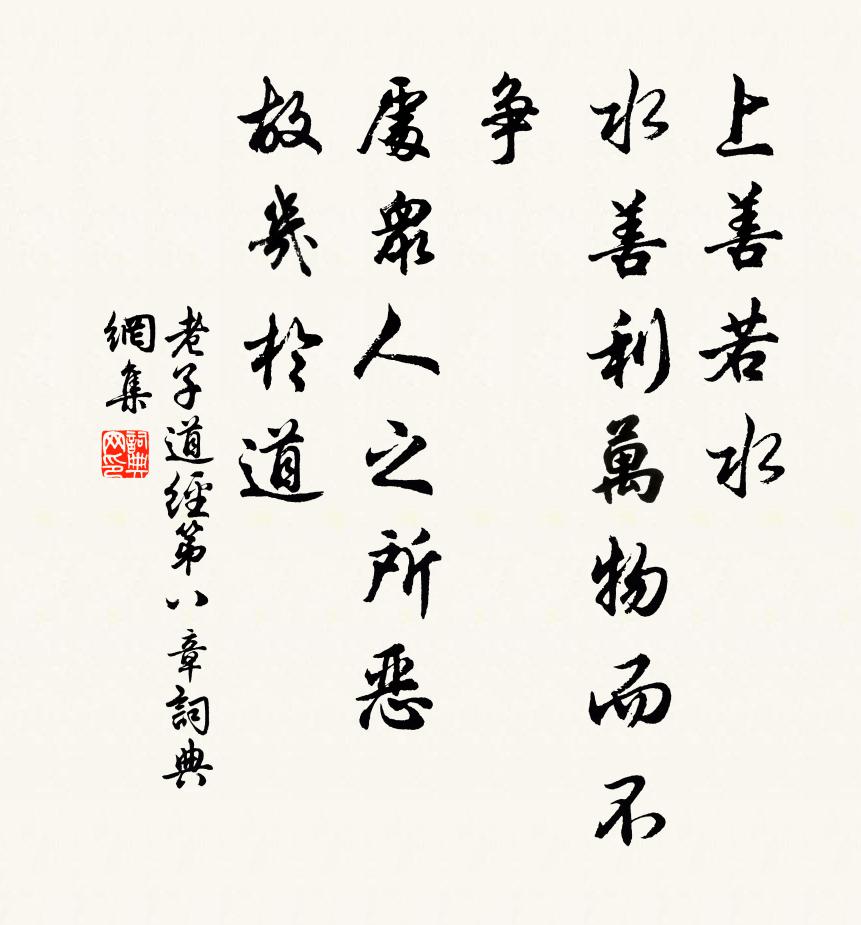 上善若水
水善利萬物而不
争
處衆人之所惡
故幾於道
老子道經第八章詞典
網集
詞典
网印